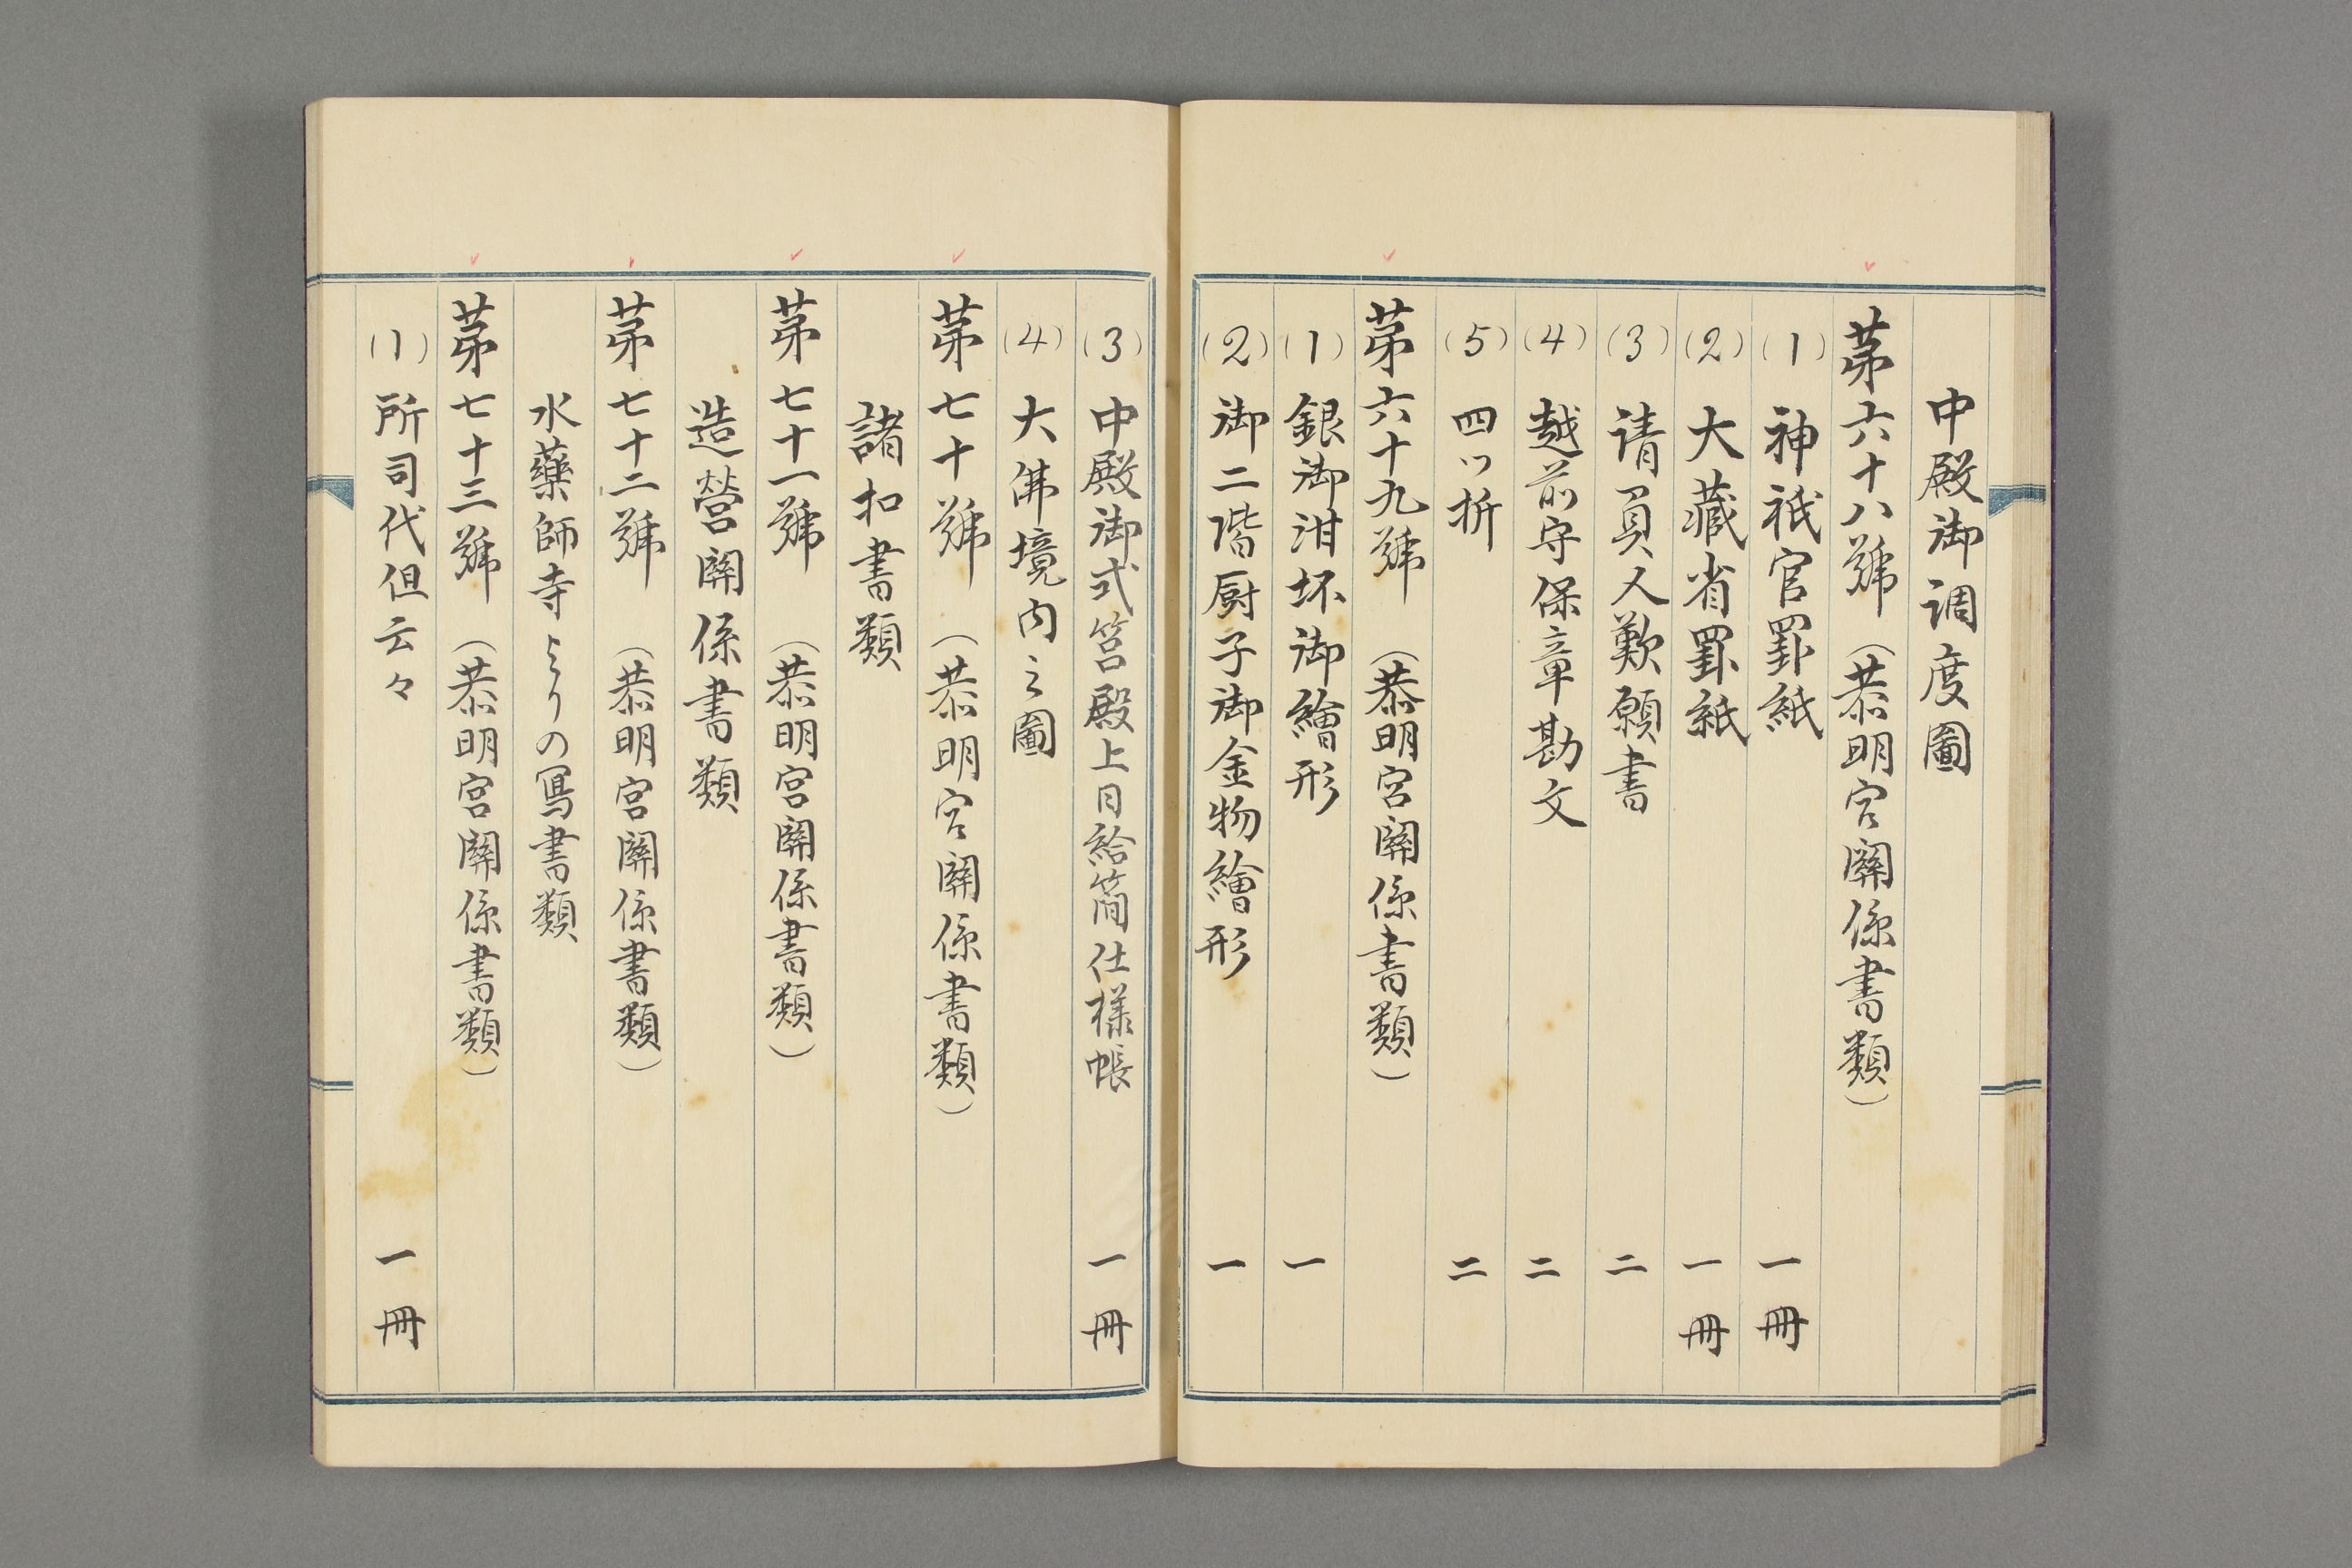 中殿御调度圖
第六十八號（恭明宮關係書類）
(1) 神祇官罫紙 一冊
(2) 大藏省罫紙 一冊
(3) 请負人歎願書 二
(4) 越前守保章勘文 二
(5) 四ッ折 二
第六十九號（恭明宮關係書類）
(1) 銀御泔坏御繪形 一
(2) 御二階厨子御金物繪形 一
(3) 中殿御式筥殿上日給簡仕様帳 一冊
(4) 大佛境内之圖
第七十號（恭明宮關係書類）
諸扣書類
第七十一號（恭明宮關係書類）
造營關係書類
第七十二號（恭明宮關係書類）
水藥師寺よりの寫書類
第七十三號（恭明宮關係書類）
(1) 所司代但云々 一冊